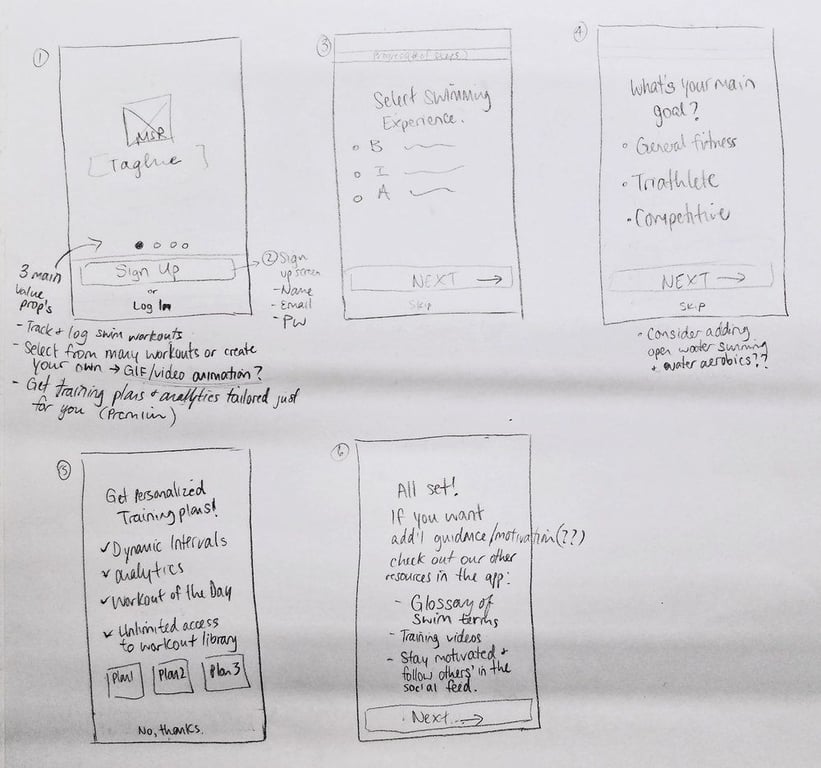 ①
MSR
[Tagline]
Sign Up
or
Log In
3 main
value
prop's
- Track + log swim workouts
- Select from many workouts or create
your own → GIF/video animation?
- Get training plans + analytics tailored just
for you (Premium)
② Sign
up screen
- Name
- Email
- PW
③
Select Swimming
Experience.
B
I
A
NEXT →
Skip
④
What's your main
goal?
General fitness
Triathlete
Competitive
NEXT →
Skip
Consider adding
open water swimming
+ water aerobics??
⑤
Get Personalized
Training plans!
✓ Dynamic Intervals
✓ analytics
✓ Workout of the Day
✓ Unlimited access
to workout library
Plan 1
Plan 2
Plan 3
No, thanks.
⑥
All set!
If you want
add'l guidance/motivation(??)
check out our other
resources in the app:
- Glossary of
swim terms
- Training videos
- Stay motivated +
follow others' in the
social feed.
Next →